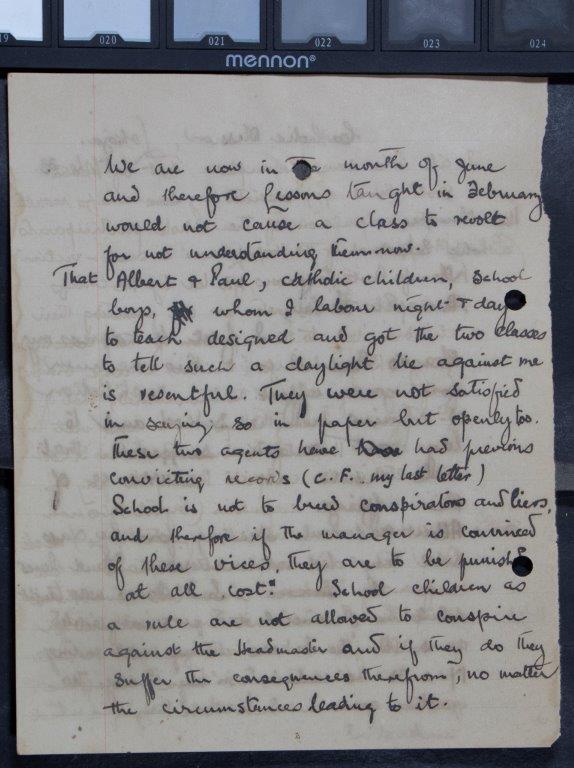 19 020 021 022 023 024
mennon®
We are now in the month of June
and therefore lessons taught in February
would not cause a class to revolt
for not understanding them now.
That Albert & Paul, catholic children, School
boys, whom I labour night & day
to teach designed and got the two classes
to tell such a daylight lie against me
is resentful. They were not satisfied
in saying so in paper but openly too.
These two agents have had previous
convicting records (C.F. my last letter)
School is not to breed conspirators and liers,
and therefore if the manager is convinced
of these vices, they are to be punished
at all cost." School children as
a rule are not allowed to conspire
against the Headmaster and if they do they
suffer the consequences therefrom, no matter
the circumstances leading to it.